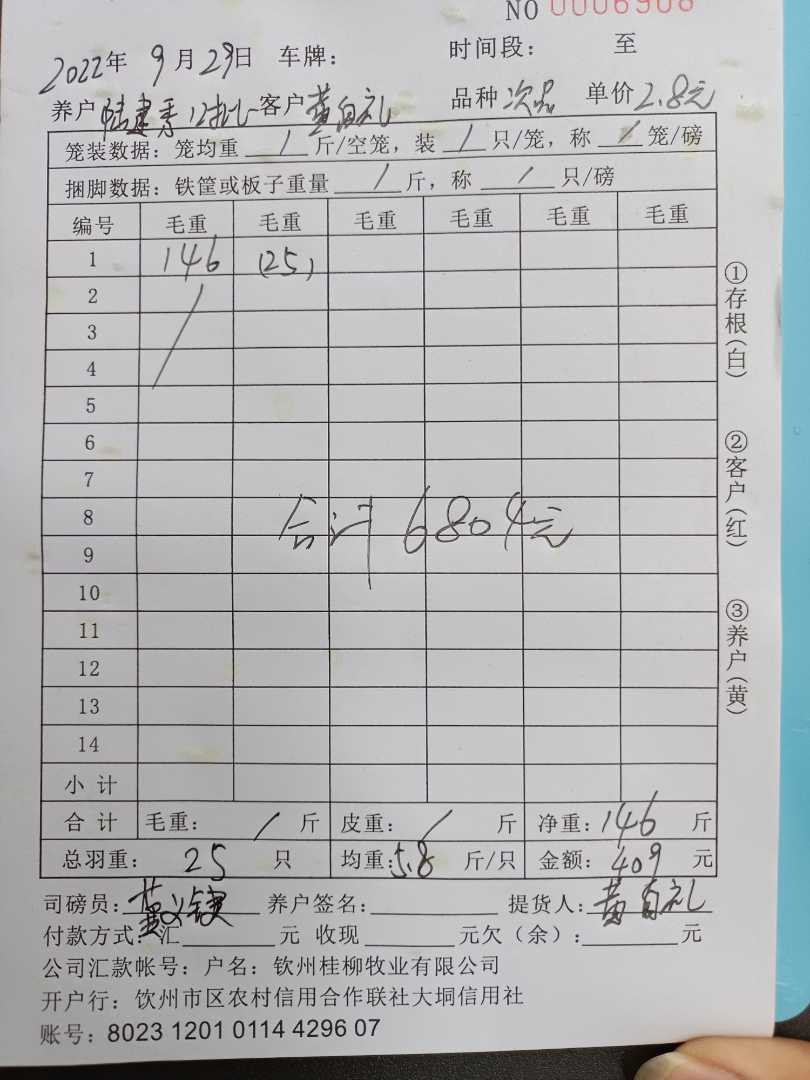 NO 0006908
2022年 9月29日 车牌： 时间段： 至
养户 陆建秀 客户 黄自礼 品种 次品 单价 2.8元
笼装数据：笼均重 / 斤/空笼，装 / 只/笼，称 / 笼/磅
捆脚数据：铁筐或板子重量 / 斤，称 / 只/磅
编号 毛重 毛重 毛重 毛重 毛重 毛重
1 146 (25)
2
3
4
5
6
7
8 合计 6804元
9
10
11
12
13
14
小计
合计 毛重： / 斤 皮重： / 斤 净重：146 斤
总羽重： 25 只 均重：5.8 斤/只 金额：409 元
司磅员： 养户签名： 提货人：黄自礼
付款方式：汇 元 收现 元欠（余）： 元
公司汇款帐号：户名：钦州桂柳牧业有限公司
开户行：饮州市区农村信用合作联社大垌信用社
账号：8023 1201 0114 4296 07
①存根(白)
②客户(红)
③养户(黄)